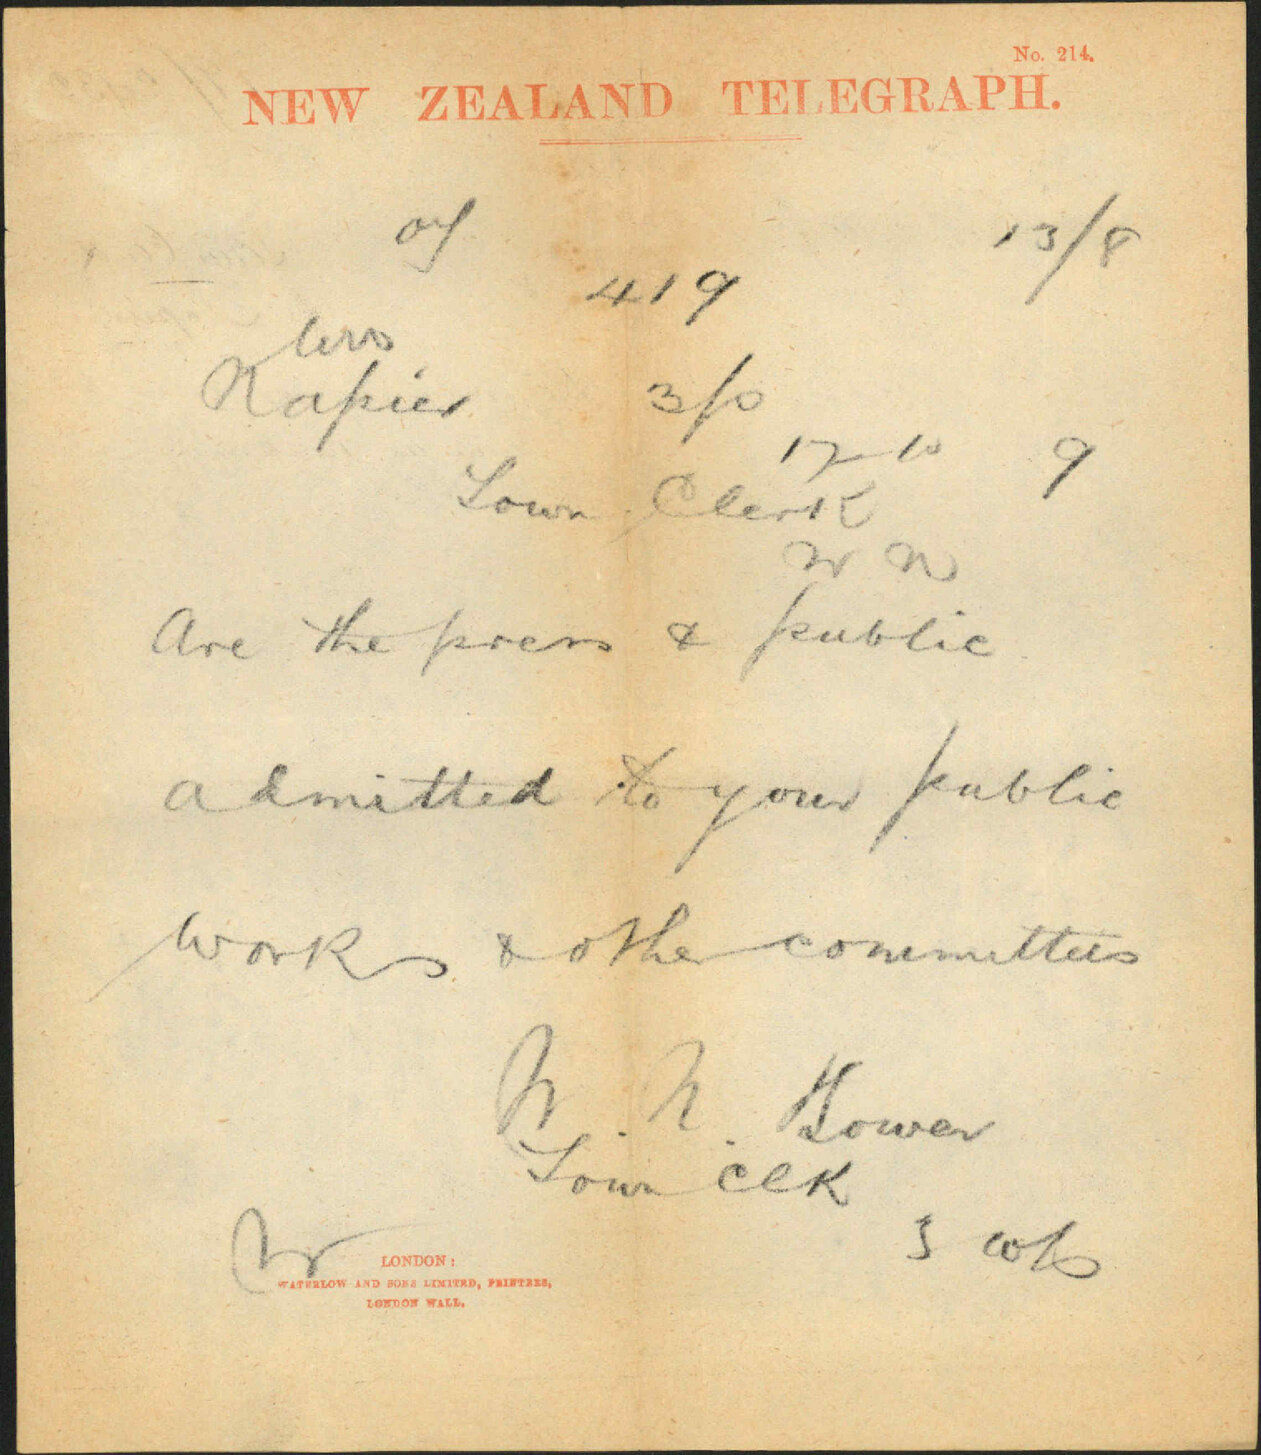 No. 214.
NEW ZEALAND TELEGRAPH.
13/8
419
Napier 3/0
17 10 9
Town Clerk
W N
Are the press & public
admitted to your public
works & other committees
Town Clk
LONDON:
WATERLOW AND SONS LIMITED, PRINTERS,
LONDON WALL.